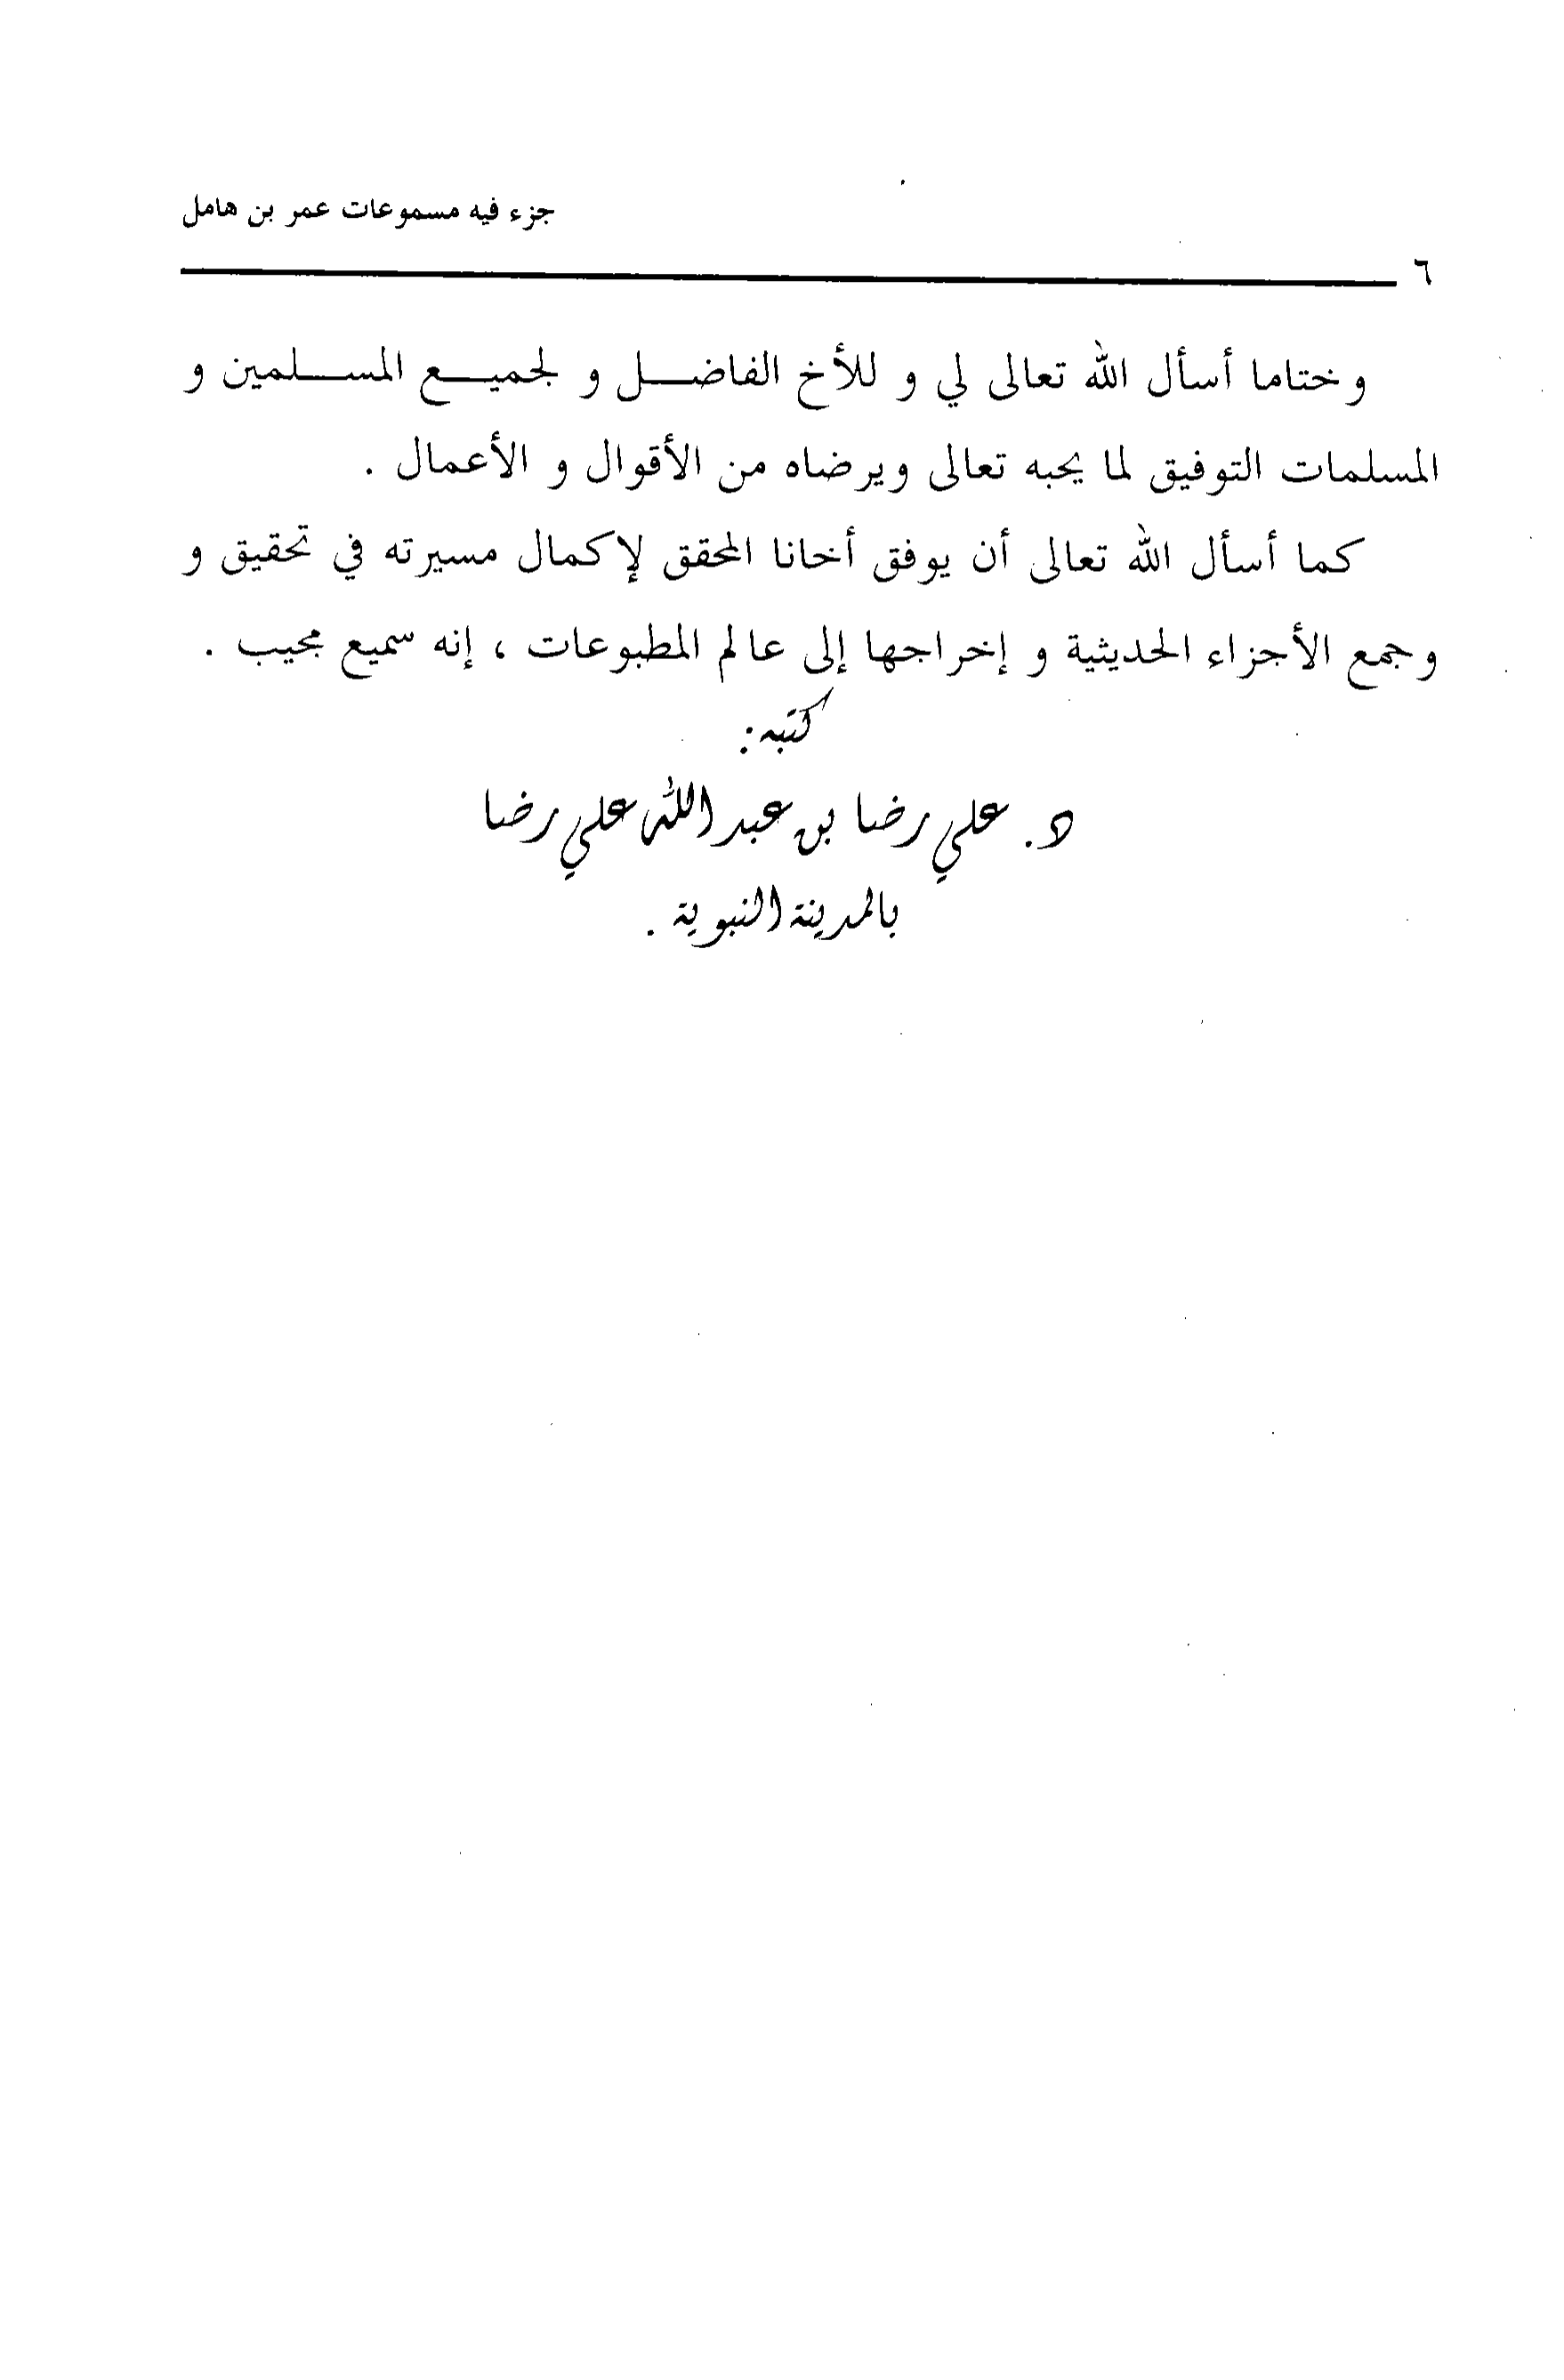 جزء فيه مسموعات عمر بن هامل
٦
و ختاما أسأل الله تعالى لي و للأخ الفاضل و لجميع المسلمين و
المسلمات التوفيق لما يحبه تعالى ويرضاه من الأقوال و الأعمال .
كما أسأل الله تعالى أن يوفق أخانا المحقق لإكمال مسيرته في تحقيق و
وجمع الأجزاء الحديثية و إخراجها إلى عالم المطبوعات ، إنه سميع مجيب .
كتبه :
د. علي رضا بن عبد الله علي رضا
بالمدينة النبوية .